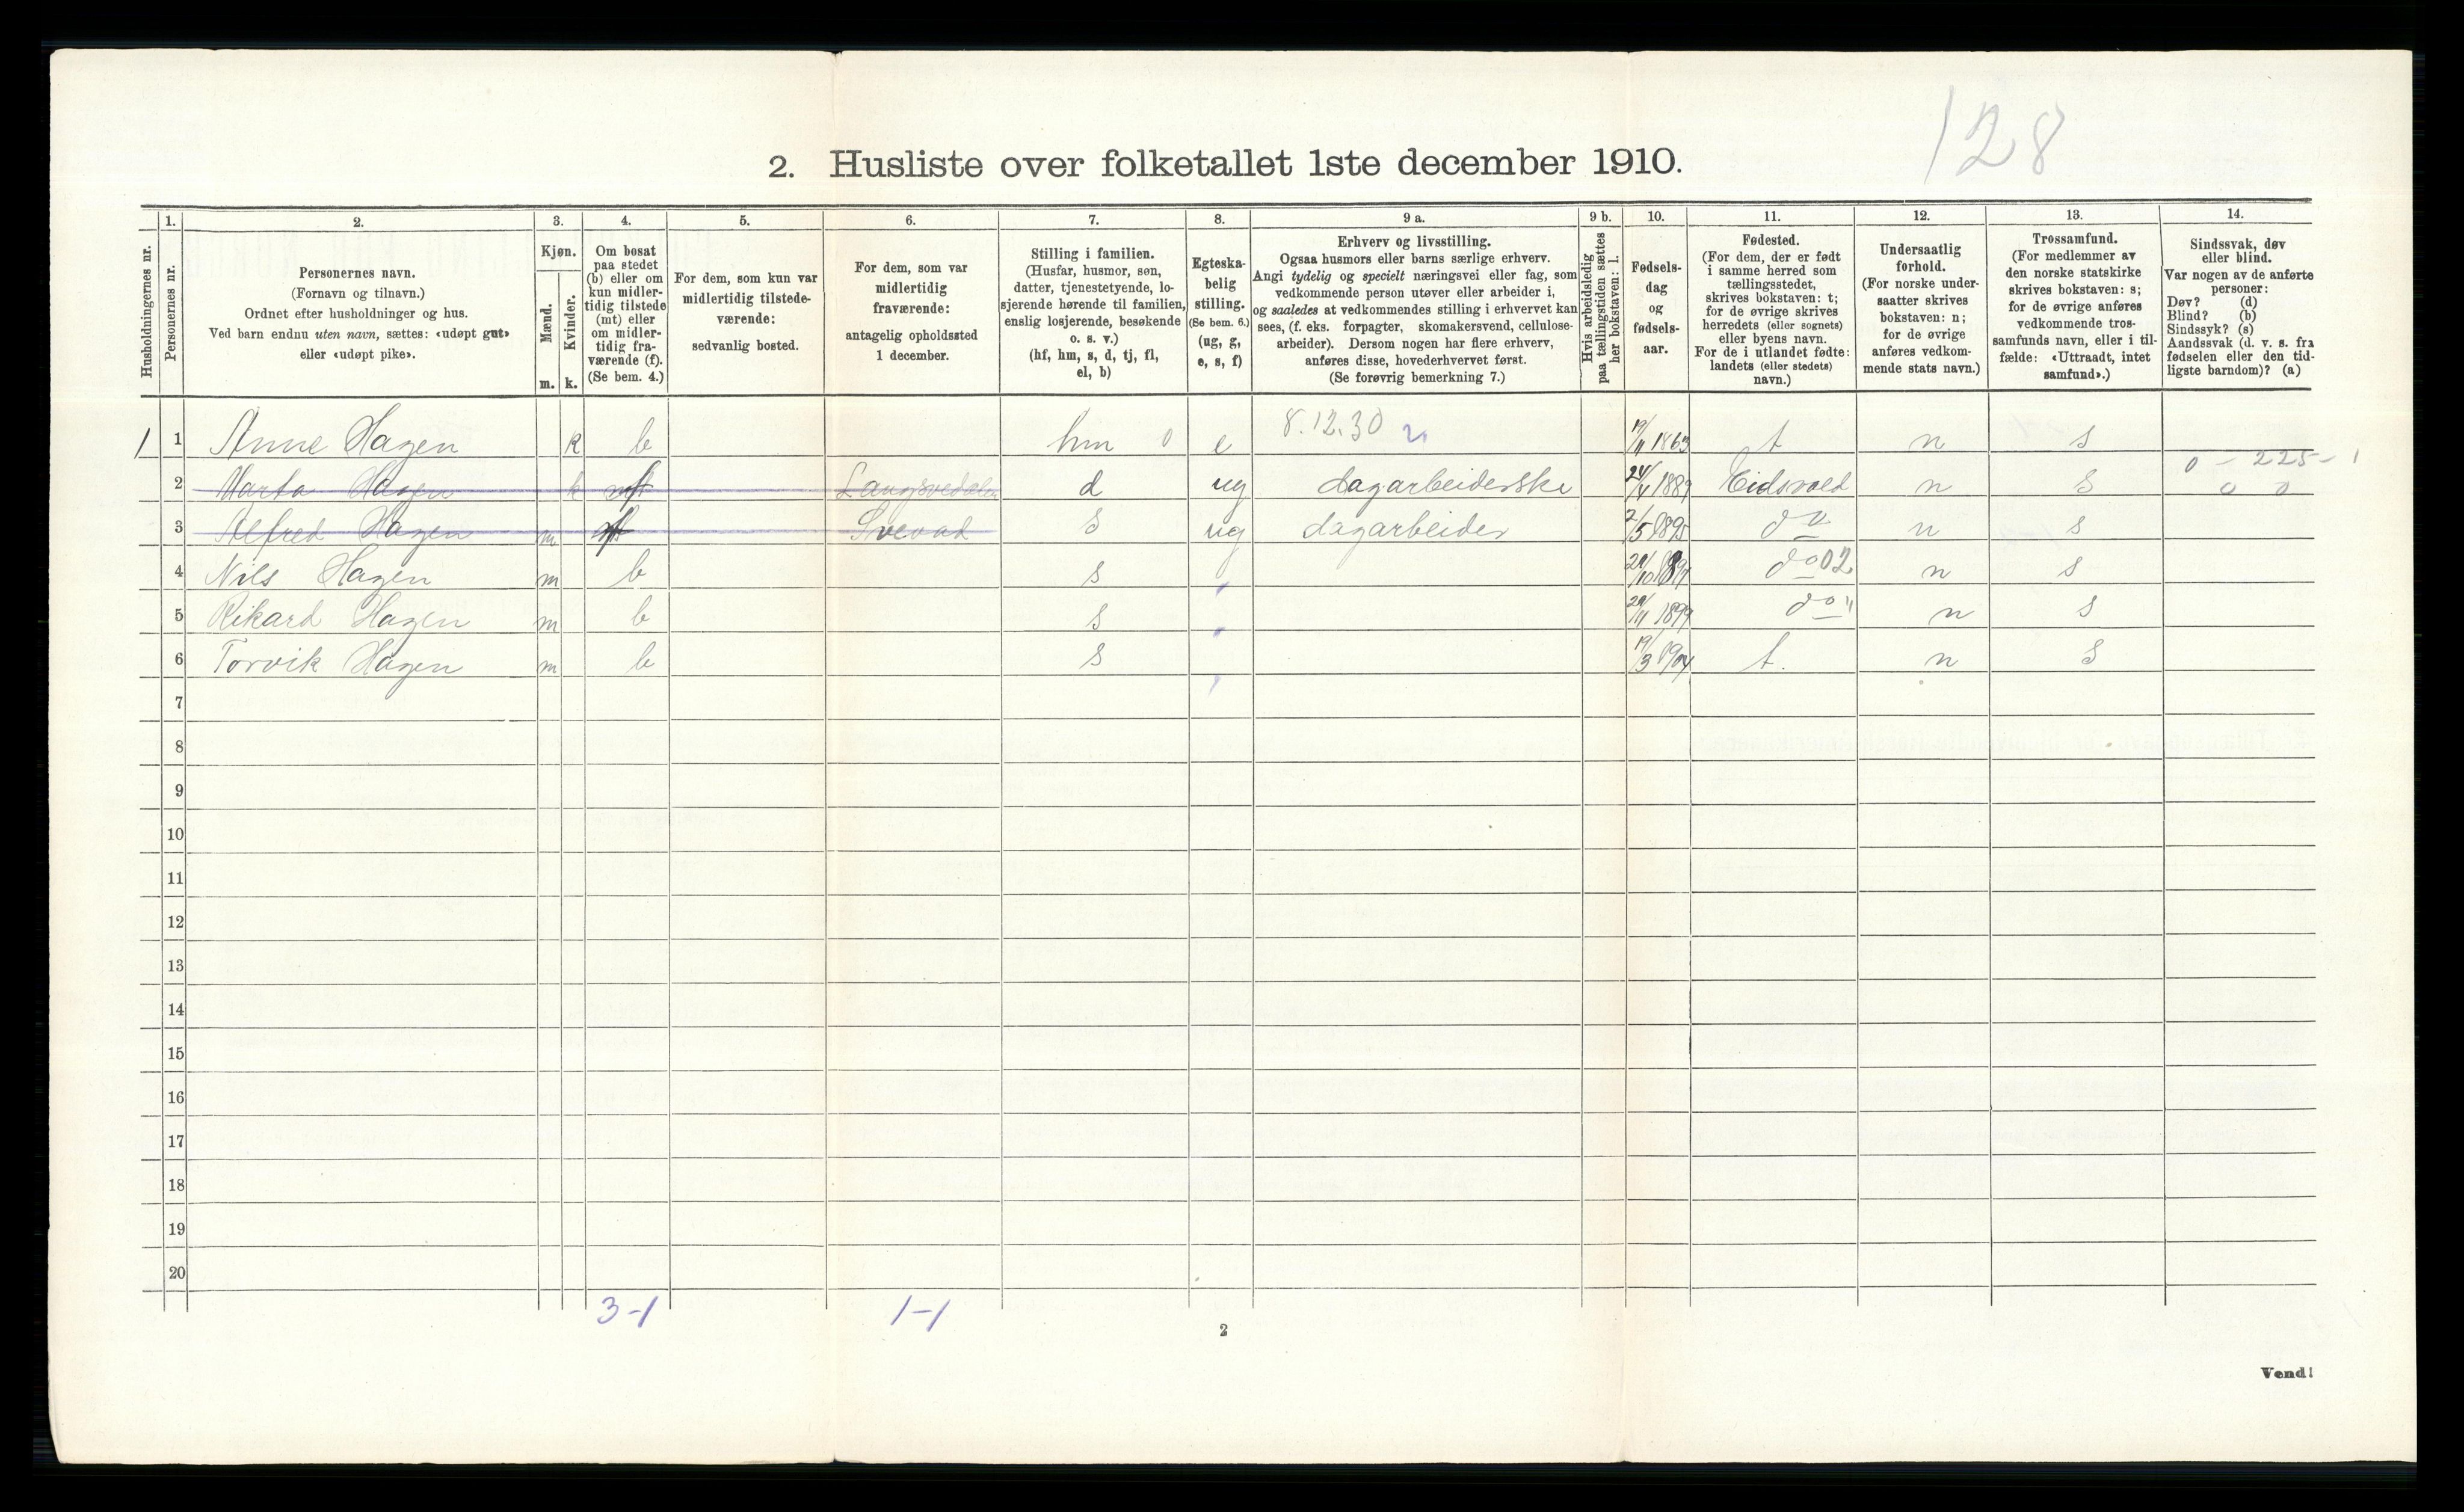 128
2. Husliste over folketallet 1ste december 1910.
Husholdningernes nr.
1.
Personernes nr.
2.
Personernes navn.
(Fornavn og tilnavn.)
Ordnet efter husholdninger og hus.
Ved barn endnu uten navn, sættes: «udøpt gut»
eller «udøpt pike».
3.
Kjøn.
Mænd.
Kvinder.
m. k.
4.
Om bosat
paa stedet
(b) eller om
kun midler-
tidig tilstede
(mt) eller
om midler-
tidig fra-
værende (f).
(Se bem. 4.)
5.
For dem, som kun var
midlertidig tilstede-
værende:
sedvanlig bosted.
6.
For dem, som var
midlertidig
fraværende:
antagelig opholdssted
1 december.
7.
Stilling i familien.
(Husfar, husmor, søn,
datter, tjenestetyende, lo-
sjerende hørende til familien,
enslig losjerende, besøkende
o. s. v.)
(hf, hm, s, d, tj, fl,
el, b)
8.
Egteska-
belig
stilling.
(Se bem. 6.)
(ug, g,
e, s, f)
9 a.
Erhverv og livsstilling.
Ogsaa husmors eller barns særlige erhverv.
Angi tydelig og specielt næringsvei eller fag, som
vedkommende person utøver eller arbeider i,
og saaledes at vedkommendes stilling i erhvervet kan
sees, (f. eks. forpagter, skomakersvend, cellulose-
arbeider). Dersom nogen har flere erhverv,
anføres disse, hovederhvervet først.
(Se forøvrig bemerkning 7.)
9 b.
Hvis arbeidsledig
paa tællingstiden sættes
her bokstaven: l.
10.
Fødsels-
dag
og
fødsels-
aar.
11.
Fødested.
(For dem, der er født
i samme herred som
tællingsstedet,
skrives bokstaven: t;
for de øvrige skrives
herredets (eller sognets)
eller byens navn.
For de i utlandet fødte:
landets (eller stedets)
navn.)
12.
Undersaatlig
forhold.
(For norske under-
saatter skrives
bokstaven: n;
for de øvrige
anføres vedkom-
mende stats navn.)
13.
Trossamfund.
(For medlemmer av
den norske statskirke
skrives bokstaven: s;
for de øvrige anføres
vedkommende tros-
samfunds navn, eller i til-
fælde: «Uttraadt, intet
samfund».)
14.
Sindssvak, døv
eller blind.
Var nogen av de anførte
personer:
Døv? (d)
Blind? (b)
Sindssyk? (s)
Aandssvak (d. v. s. fra
fødselen eller den tid-
ligste barndom)? (a)
8.12.30
1 1 Anne Hagen k b hm 0 e 19/11 1863 t n s
0 - 225 - 1
2 Marta Hagen k f Langsvedalen d ug dagarbeiderske 24/4 1889 Eidsvold n s 0 0
3 Alfred Hagen m f s ug dagarbeider 2/5 1895 do n s
4 Nils Hagen m b s do 02 n s
5 Rikard Hagen m b s 1899 do " n s
6 Torvik Hagen m b s 19/3 1904 t. n s
7
8
9
10
11
12
13
14
15
16
17
18
19
20
3-1 1-1
2
Vend!